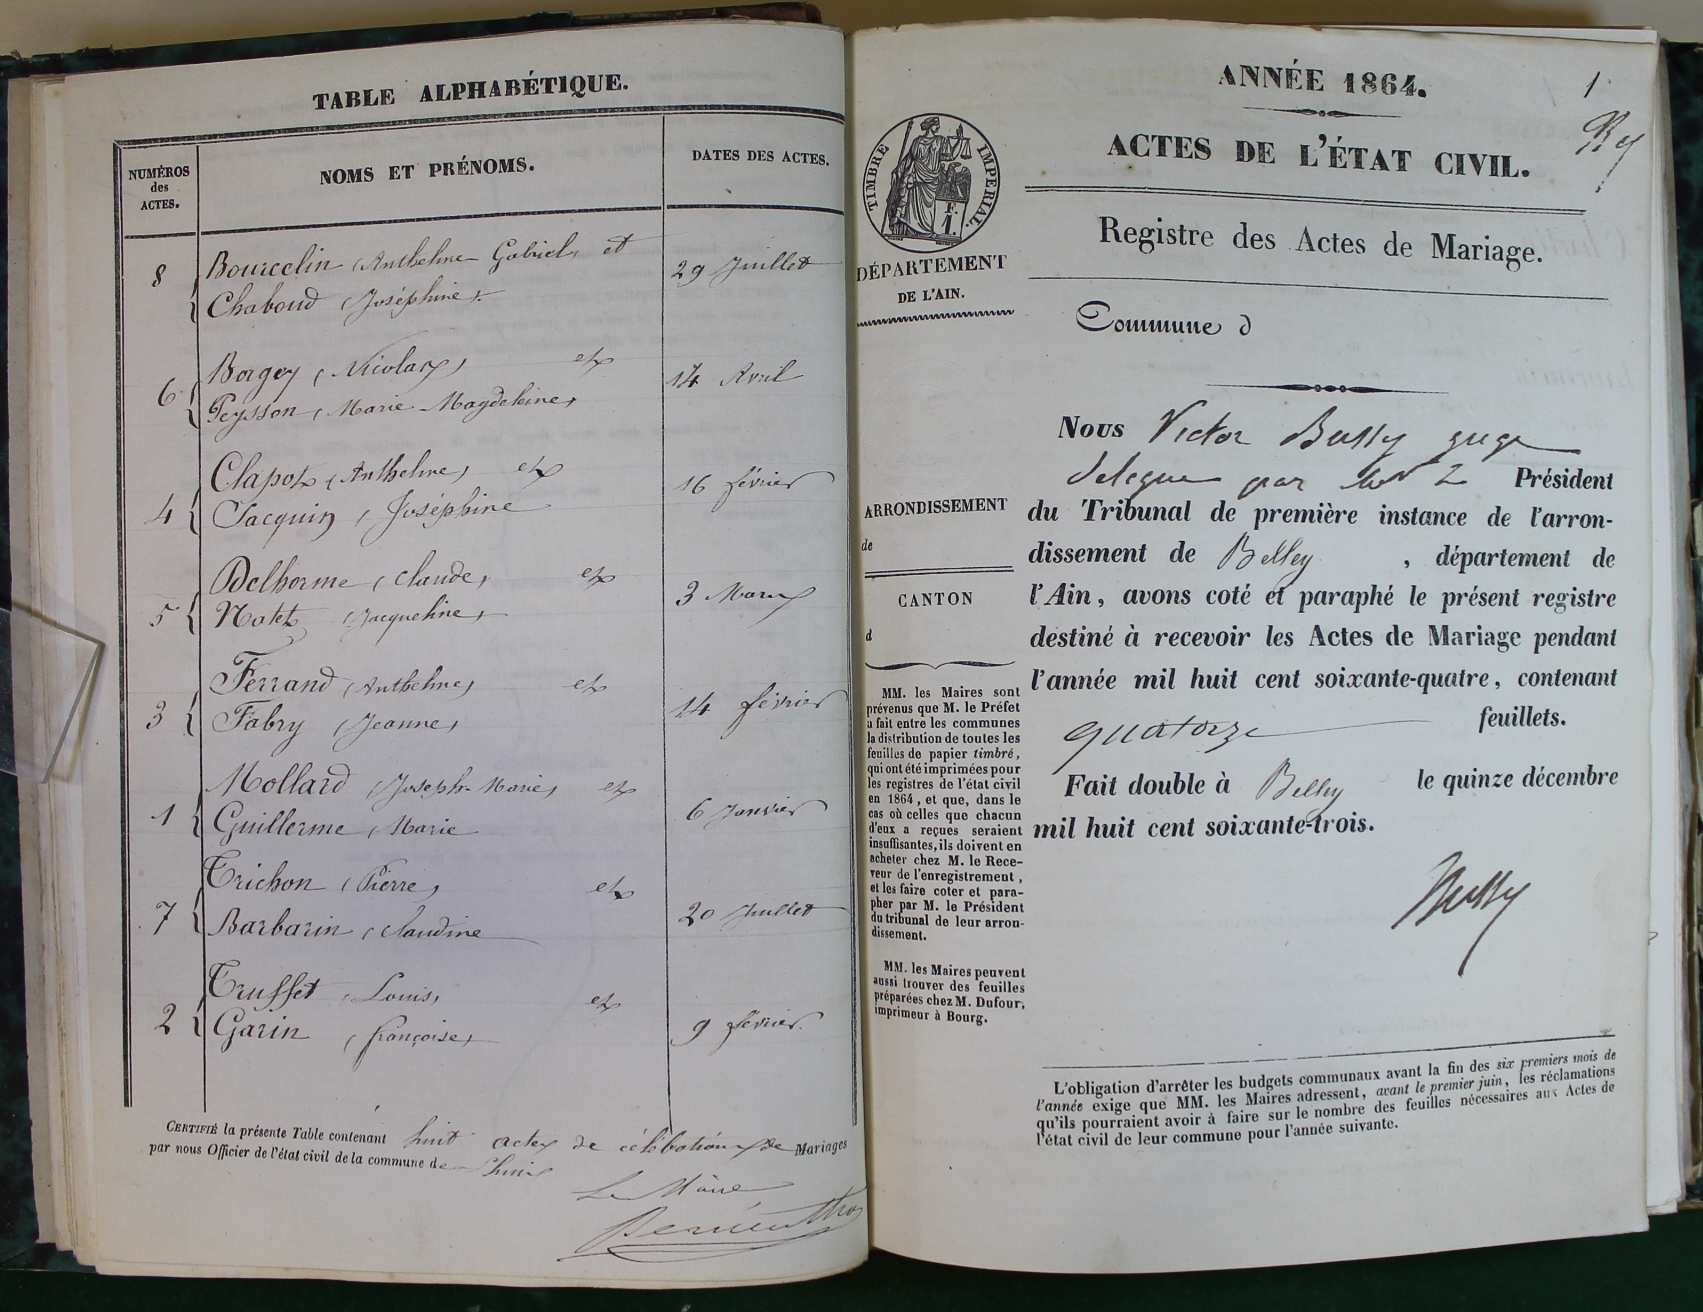 TABLE ALPHABÉTIQUE.
NUMÉROS
des
ACTES.
NOMS ET PRÉNOMS.
DATES DES ACTES.
8 Bourcelin (Anthelme Gabriel) et 29 Juillet
Chaboud (Joséphine)
6 Borgey (Nicolas) et 14 Avril
Peysson (Marie-Magdeleine)
Clapot (Anthelme) et 16 février
4 Jacquin (Joséphine
Delhorme (Claude) et 3 Mars
5 Notet (Jacqueline)
Ferrand (Anthelme) et 14 février
3 Fabry (Jeanne)
Mollard (Joseph-Marie) et 6 Janvier
1 Guillerme (Marie
Trichon (Pierre) et 20 Juillet
7 Barbarin (Claudine
Truffet (Louis) et 9 février
2 Garin (françoise)
CERTIFIÉ la présente Table contenant huit actes de célébrations de Mariages
par nous Officier de l'état civil de la commune de
Le Maire
ANNÉE 1864.
1
ACTES DE L'ÉTAT CIVIL.
TIMBRE IMPÉRIAL.
F.
1.
Registre des Actes de Mariage.
DÉPARTEMENT
DE L'AIN.
Commune d
Nous Victor Bussy juge
délégué par Président
du Tribunal de première instance de l'arron-
dissement de Belley, département de
l'Ain, avons coté et paraphé le présent registre
destiné à recevoir les Actes de Mariage pendant
l'année mil huit cent soixante-quatre, contenant
quatorze feuillets.
Fait double à Belley le quinze décembre
mil huit cent soixante-trois.
Bussy
ARRONDISSEMENT
de
CANTON
d
MM. les Maires sont
prévenus que M. le Préfet
a fait entre les communes
la distribution de toutes les
feuilles de papier timbré,
qui ont été imprimées pour
les registres de l'état civil
en 1864, et que, dans le
cas où celles que chacun
d'eux a reçues seraient
insuffisantes, ils doivent en
acheter chez M. le Rece-
veur de l'enregistrement,
et les faire coter et para-
pher par M. le Président
du tribunal de leur arron-
dissement.
MM. les Maires peuvent
aussi trouver des feuilles
préparées chez M. Dufour,
imprimeur à Bourg.
L'obligation d'arrêter les budgets communaux avant la fin des six premiers mois de
l'année exige que MM. les Maires adressent, avant le premier juin, les réclamations
qu'ils pourraient avoir à faire sur le nombre des feuilles nécessaires aux Actes de
l'état civil de leur commune pour l'année suivante.